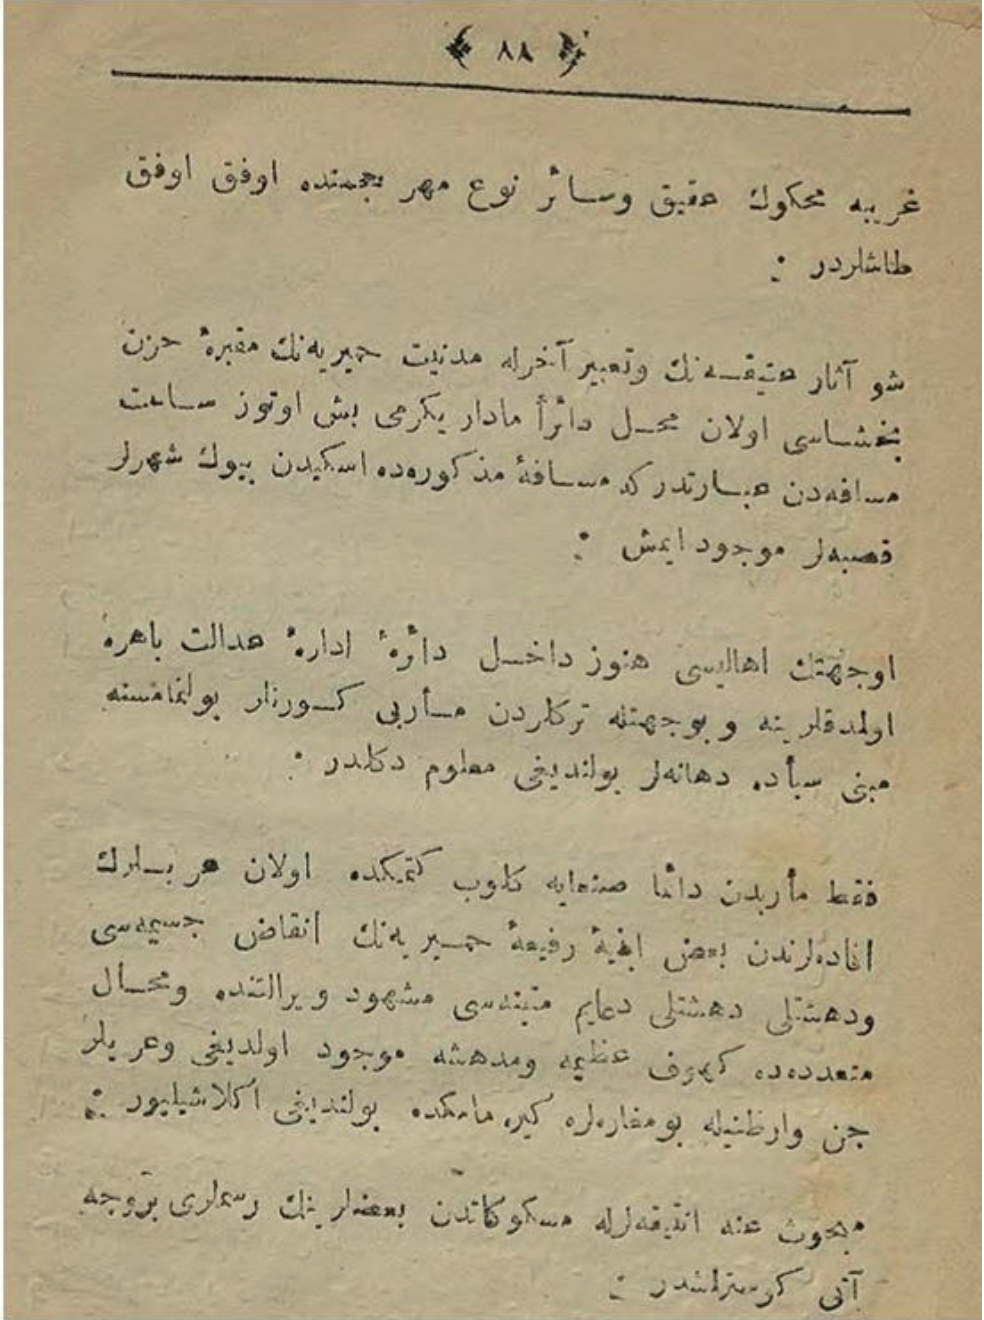 ﴿ ٨٨ ﴾
غریبه محكوك عقیق وسائر نوع مهر حجمنده اوفق اوفق
طاشلردر :
شو آثار عتیقه‌نك وتعبیر آخرله مدنیت حمیریه‌نك مقبرهٔ حزن
بخشاسی اولان محل دائراً مادار یكرمی بش اوتوز ساعت
مسافه‌دن عبارتدر كه مسافهٔ مذكوره‌ده اسكیدن بیوك شهرلر
قصبه‌لر موجود ایمش :
اوجهتك اهالیسی هنوز داخل دائرهٔ ادارهٔ عدالت باهره
اولمدقلرینه و بوجهتله تركلردن مأربی كورنلر بولنمامسنه
مبنی سبأده دهانه‌لر بولندیغی معلوم دكلدر :
فقط مأربدن دائما صنعایه كلوب كتمكده اولان عربلرك
افاده‌لرندن بعض ابنیهٔ رفیعهٔ حمیریه‌نك انقاض جسیمه‌سی
ودهشتلی دهشتلی دعایم متینه‌سی مشهود ویرالتنده ومحال
متعدده‌ده كهوف عظیمه ومدهشه موجود اولدیغی وعربلر
جن وارظنیله بومغاره‌لره كیره‌مامكده بولندیغی اكلاشیلیور :
مبحوث عنه انتیقه‌لرله مسكوكاتدن بعضلرینك رسملری بروجه
آتی كوسترلمشدر :